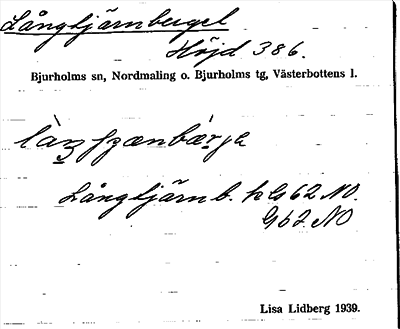 Långtjärnberget
Höjd 386.
Bjurholms sn, Nordmaling o. Bjurholms tg, Västerbottens l.
Långtjärnb. h G62 NO.
G62. NO
Lisa Lidberg 1939.